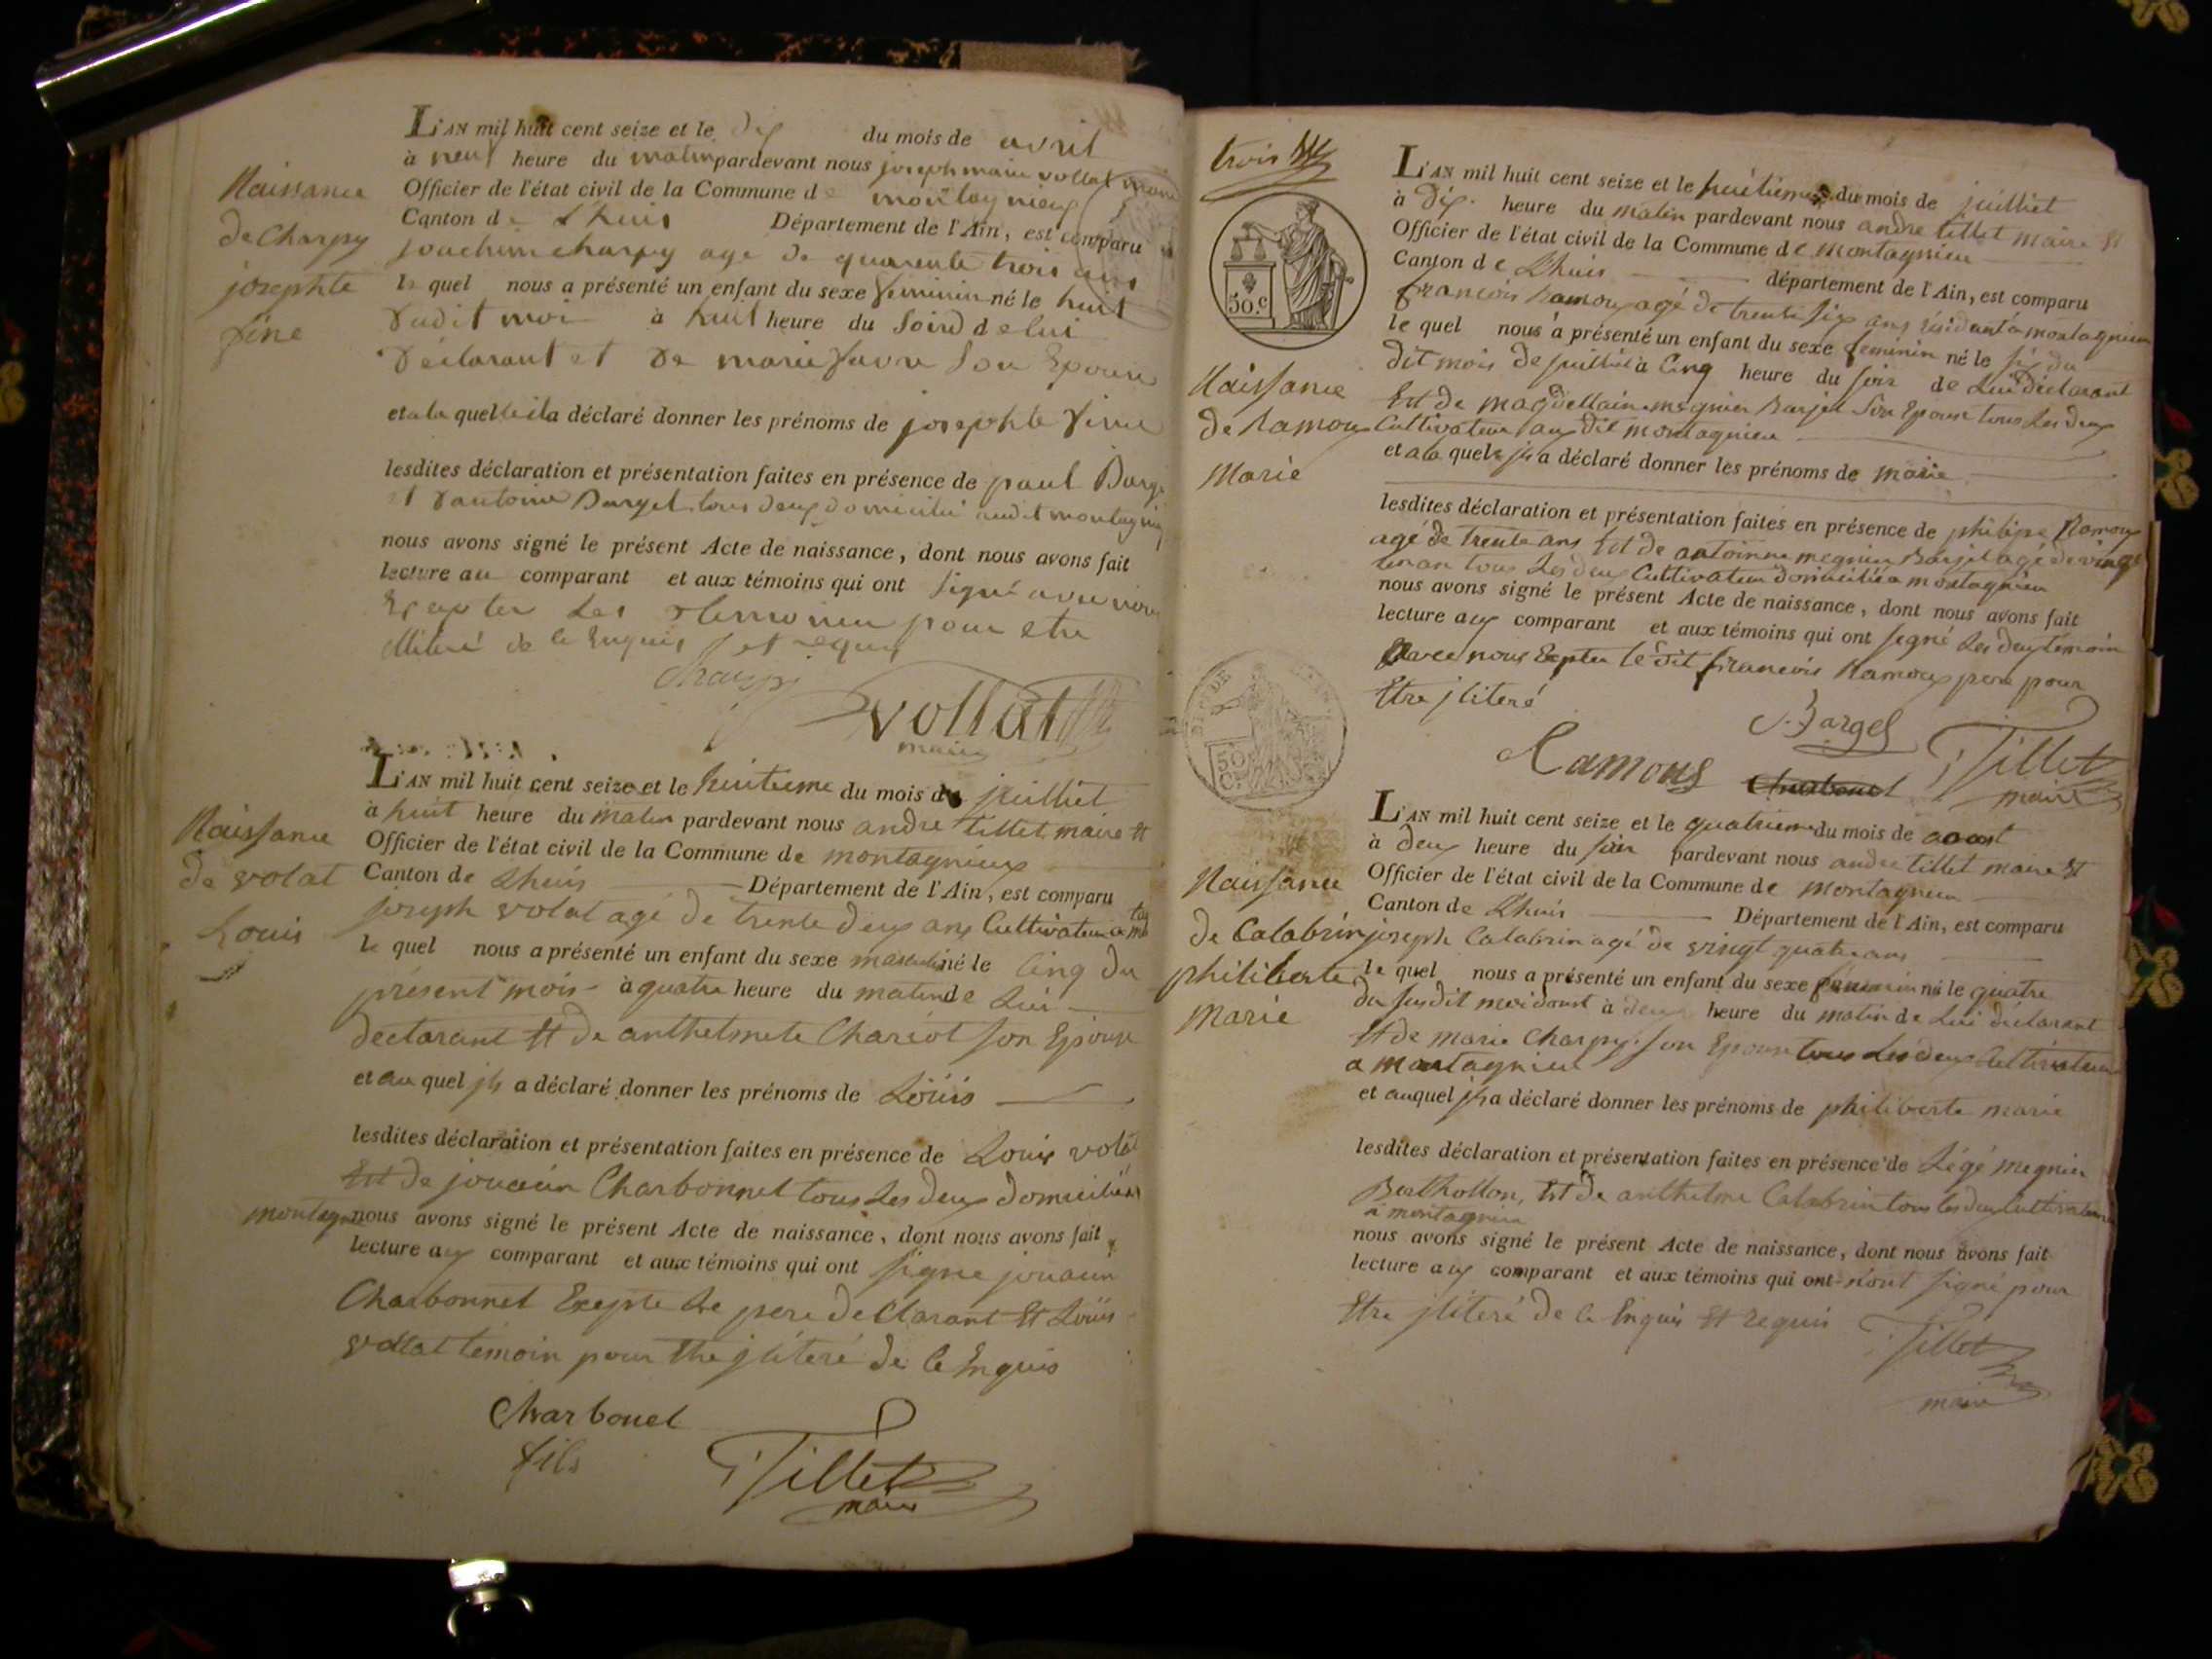 Naissance
de Charpy
josephte
fine
L'AN mil huit cent seize et le dix du mois de avril
à neuf heure du matin pardevant nous joseph marie vollat maire
Officier de l'état civil de la Commune de montagnieux
Canton de Lhuis Département de l'Ain, est comparu
joachim charpy age de quarente trois ans
le quel nous a présenté un enfant du sexe feminin né le huit
dudit moi à huit heure du Soir de lui
déclarant et de marie favre Son Epouse
et a la quelle il a déclaré donner les prénoms de josephte fine
lesdites déclaration et présentation faites en présence de paul
et dantoine Bargel tous deux domicilié audit
nous avons signé le présent Acte de naissance, dont nous avons fait
lecture au comparant et aux témoins qui ont Signé avec nous
Excepter Les pour etre
de ce Enquis et requis
Charpy
vollat
maire
Naissance
de volat
Louis
L'AN mil huit cent seize et le huitieme du mois de juilliet
à huit heure du matin pardevant nous andre tillet maire Et
Officier de l'état civil de la Commune de montagnieux
Canton de Lhuis Département de l'Ain, est comparu
joseph volat agé de trente deux ans Cultivateur a
le quel nous a présenté un enfant du sexe masculin né le Cinq du
présent mois à quatre heure du matin de Lui
declarant Et de anthelmete Chariot son Epouse
et au quel jls a déclaré donner les prénoms de Loüis
lesdites déclaration et présentation faites en présence de Louis volat
Et de jouacin Charbonnet tous Les deux domiciliés
nous avons signé le présent Acte de naissance, dont nous avons fait
lecture aux comparant et aux témoins qui ont signe jouacin
Charbonnet Excepte Le pere declarant Et Loüis
vollat temoin pour Etre jliteré de Ce Enquis
Charbonel
fils
Tillet
maire
trois
50.c
Naissance
de Ramoux
Marie
L'AN mil huit cent seize et le huitieme du mois de juilliet
à dix heure du matin pardevant nous andre tillet maire Et
Officier de l'état civil de la Commune de montagnieu
Canton de Lhuis département de l'Ain, est comparu
francois Ramoux agé de trente six ans résidant a montagnieu
le quel nous a présenté un enfant du sexe feminin né le six du
dit mois de juilliet à Cinq heure du soir de Lui déclarant
Et de magdellaine megnier Barjel Son Epouse tous Les deux
Cultivateur au dit montagnieu
et a la quele jls a déclaré donner les prénoms de marie
lesdites déclaration et présentation faites en présence de philipe Ramoux
agé de trente ans Et de antoinne megnier Barjel agé de vingt
un an tous Les deux Cultivateur domicilié a montagnieu
nous avons signé le présent Acte de naissance, dont nous avons fait
lecture aux comparant et aux témoins qui ont signé Les deux témoin
avec nous Excpter le dit francois Ramoux pere pour
Etre jliteré
Bargel
Ramoux Charbonel Tillet
maire
50
C.
Naissance
de Calabrin
philiberte
Marie
L'AN mil huit cent seize et le quatrieme du mois de aoust
à deux heure du soir pardevant nous andre tillet maire Et
Officier de l'état civil de la Commune de montagnieu
Canton de Lhuis Département de l'Ain, est comparu
joseph Calabrin agé de vingt quatre ans
le quel nous a présenté un enfant du sexe féminin né le quatre
du susdit moi doust à deux heure du matin de Lui déclarant
Et de marie Charpy son Epouse tous Les deux Cultivateur
a montagnieu
et auquel jls a déclaré donner les prénoms de philiberte marie
lesdites déclaration et présentation faites en présence de Légé megnier
Berthollon, Et de anthelme Calabrin tous les deux Cultivateur
a montagnieu
nous avons signé le présent Acte de naissance, dont nous avons fait
lecture aux comparant et aux témoins qui ont n'ont signé pour
Etre jliteré de Ce Enquis Et requis
Tillet
maire